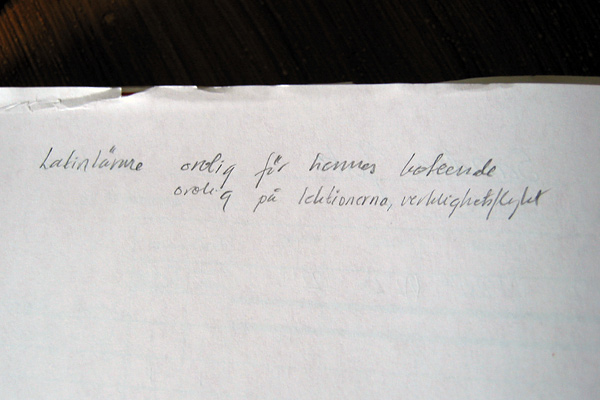 Latinlärare orolig för hennes beteende
orolig på lektionerna, verklighetsflykt